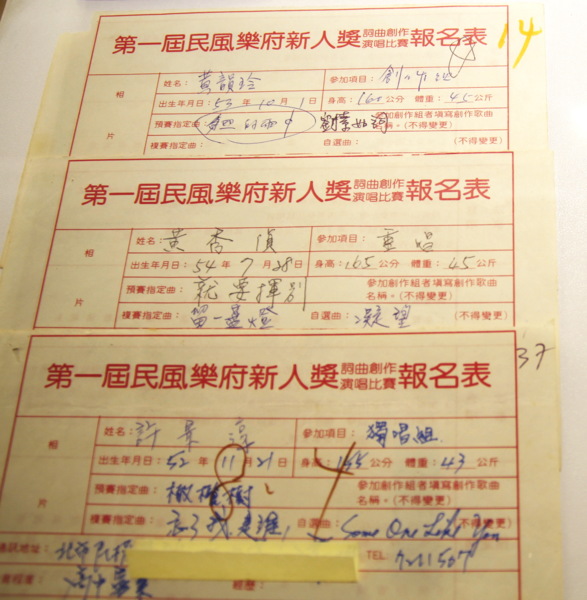 14
第一屆民風樂府新人獎 詞曲創作演唱比賽 報名表
相
片
姓名: 黃韻玲 參加項目:
出生年月日: 53 年 10 月 1 日 身高: 160 公分 體重: 45 公斤
預賽指定曲: 參加創作組者填寫創作歌曲名稱。(不得變更)
複賽指定曲: 自選曲: (不得變更)
第一屆民風樂府新人獎 詞曲創作演唱比賽 報名表
相
片
姓名 黃秀貞 參加項目: 重唱
出生年月日: 54 年 7 月 28 日 身高: 165 公分 體重: 45 公斤
預賽指定曲: 就要揮別 參加創作組者填寫創作歌曲名稱。(不得變更)
複賽指定曲: 留一盞燈 自選曲: 凝望 (不得變更)
37
第一屆民風樂府新人獎 詞曲創作演唱比賽 報名表
相
片
姓名: 許景淳 參加項目: 獨唱組
出生年月日: 52 年 11 月 21 日 身高: 155 公分 體重: 43 公斤
預賽指定曲: 橄欖樹 參加創作組者填寫創作歌曲名稱。(不得變更)
複賽指定曲: 忘了我是誰 自選曲: Some One Like You
訊地址: 北市 TEL: 7211507
經歷: